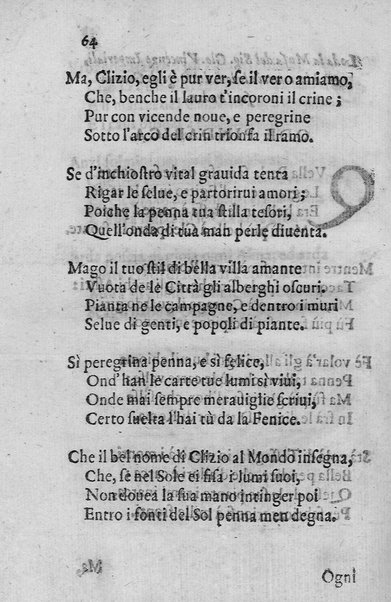 64
Ma, Clizio, egli è pur ver, se il vero amiamo,
Che, benche il lauro t'incoroni il crine;
Pur con vicende noue, e peregrine
Sotto l'arco del crin trionfa il ramo.
Se d'inchiostro vital grauida tenta
Rigar le selue, e partorirui amori;
Poiche la penna tua stilla tesori,
Quell'onda di tua man perle diuenta.
Mago il tuo stil di bella villa amante
Vuota de le Città gli alberghi oscuri.
Pianta ne le campagne, e dentro i muri
Selue di genti, e popoli di piante.
Sì peregrina penna, e sì felice,
Ond'han le carte tue lumi sì viui,
Onde mai sempre merauiglie scriui,
Certo suelta l'hai tù da la Fenice.
Che il bel nome di Clizio al Mondo insegna,
Che, se nel Sole ei fisa i lumi suoi,
Non douea la sua mano intinger poi
Entro i fonti del Sol penna men degna.
Ogni